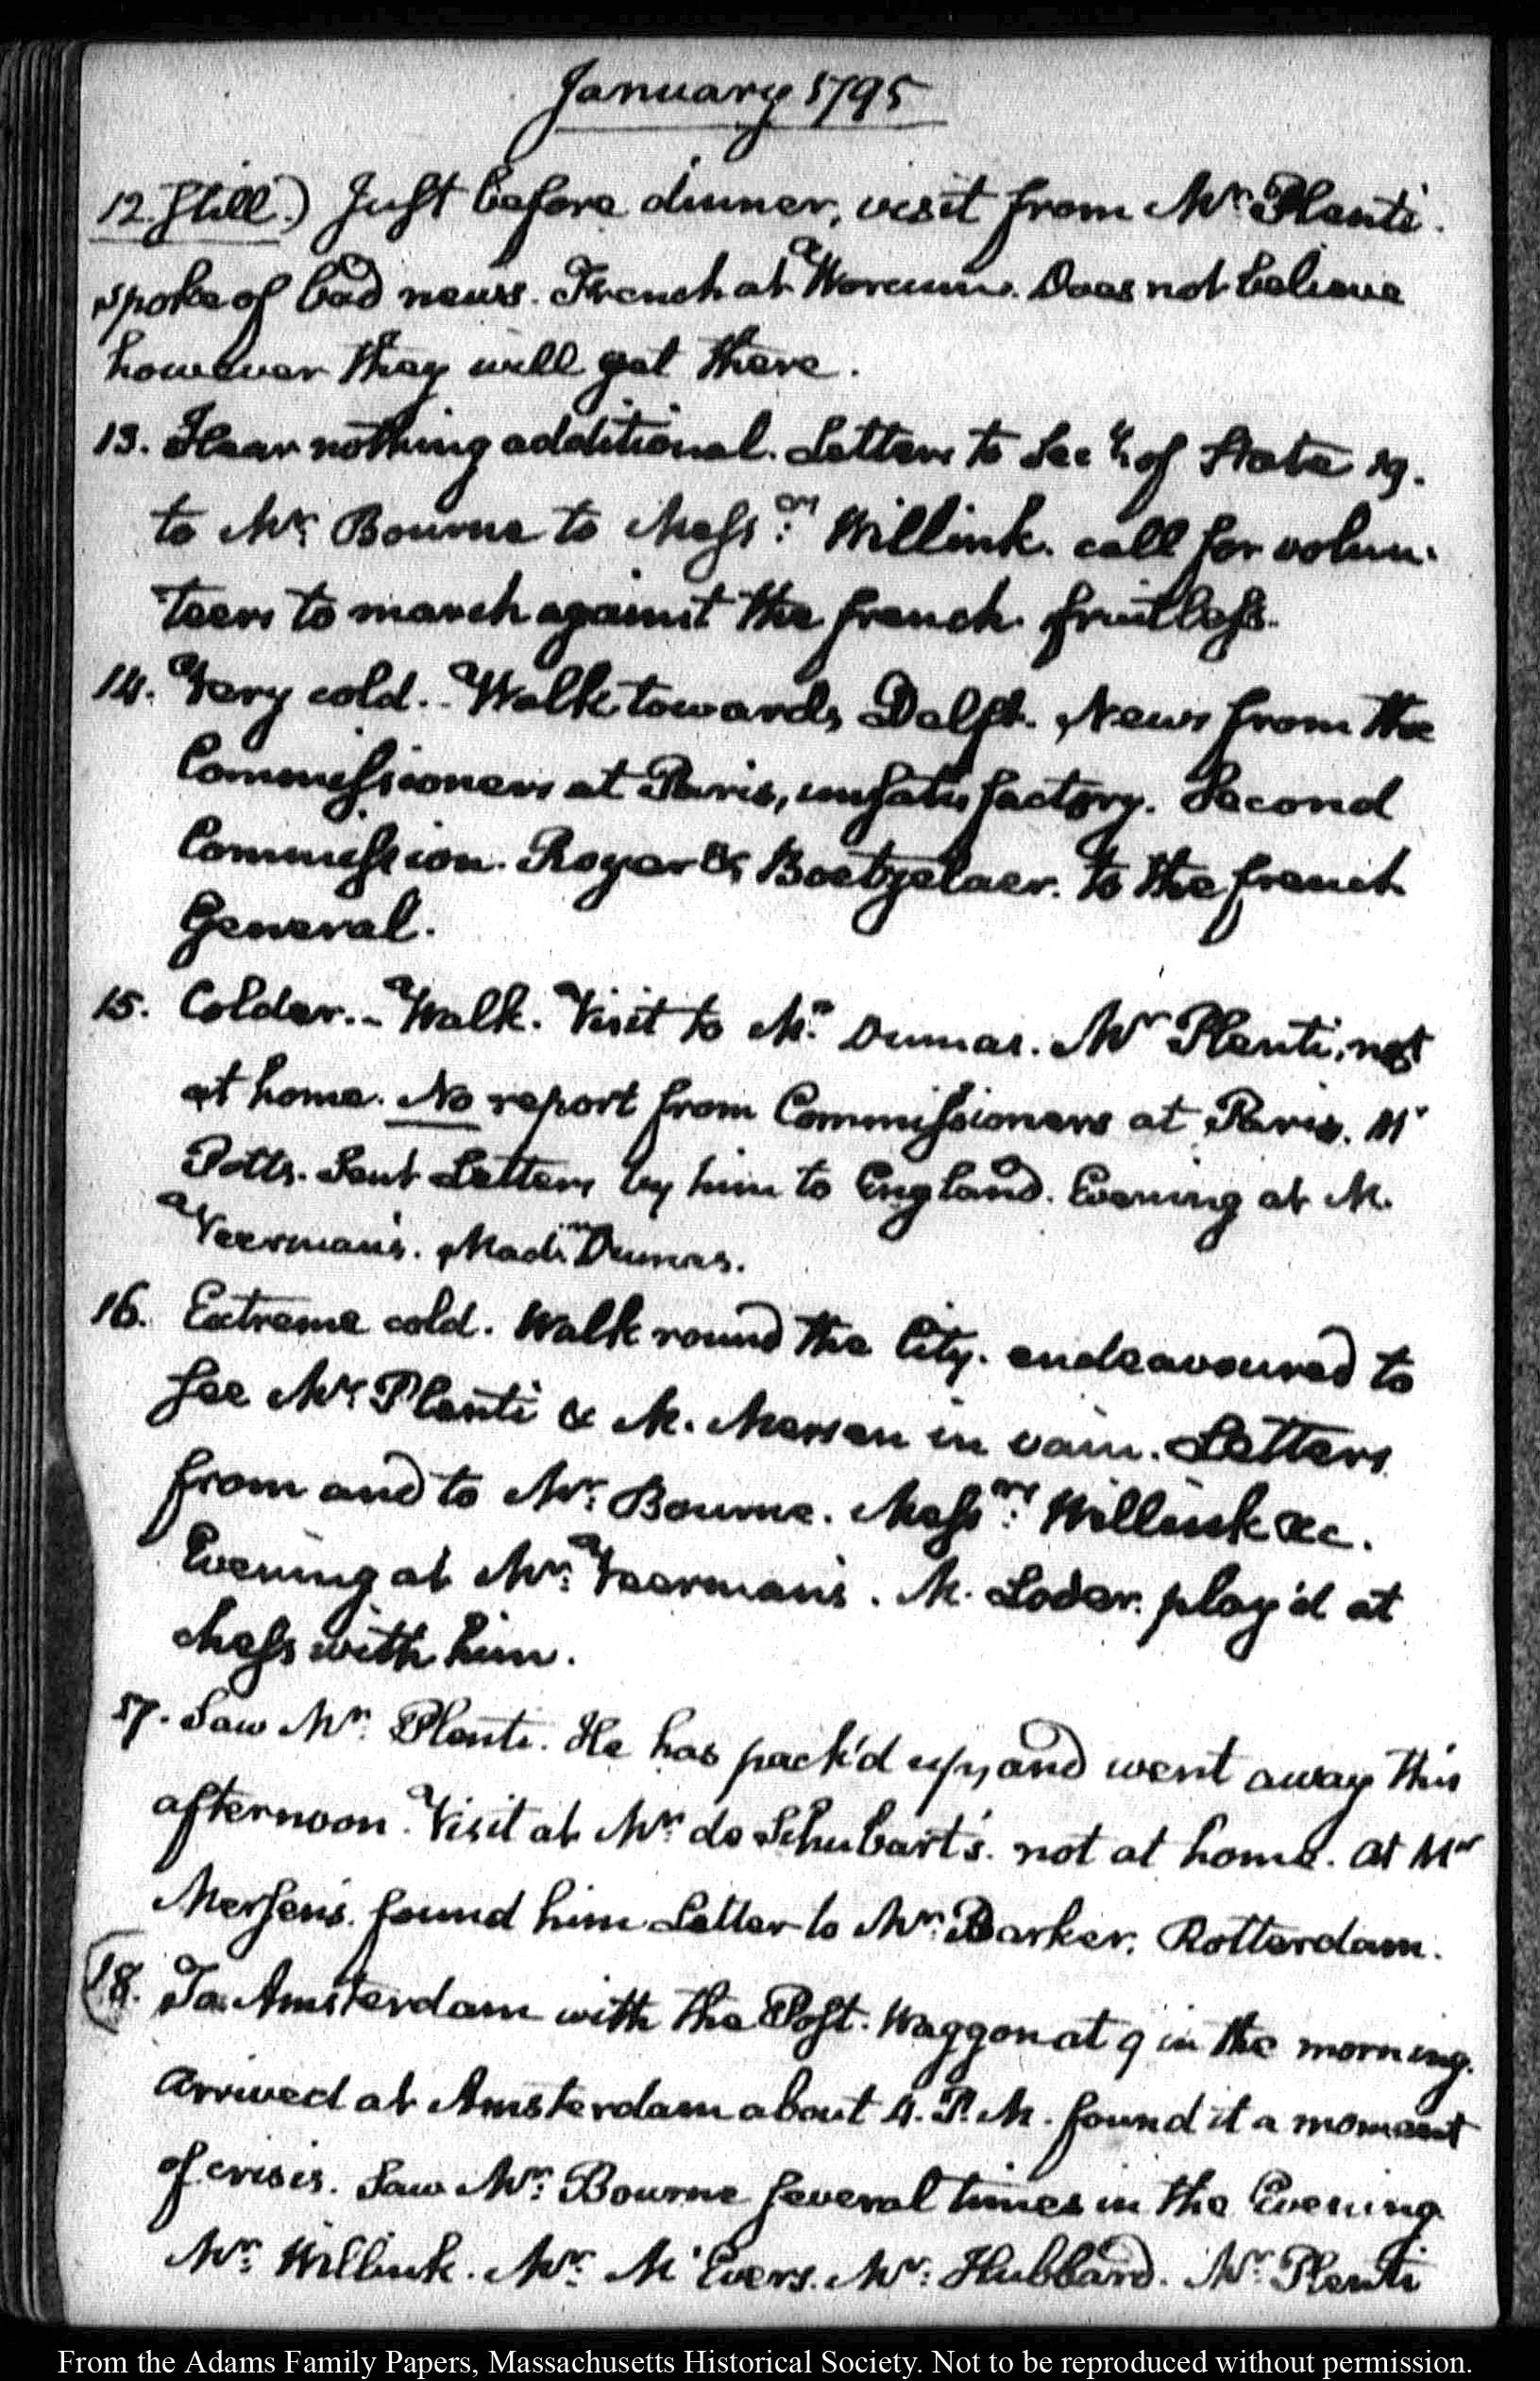 January 1795
12. still.) Just before dinner, visit from Mr. Plenti.
spoke of bad news. French at Worcum. Does not believe
however they will get there.
13. Hear nothing additional. Letters to Secy. of State 19.
to Mr. Bourne to Messrs. Willink. call for volun-
teers to march against the french. fruitless.
14. Very cold. - Walk towards Delft. News from the
Commissioners at Paris, unsatisfactory. Second
Commission. Royer & Boetzelaer. to the french
General.
15. Colder. - Walk. Visit to Mr. Dumas. Mr Plenti, not
at home. No report from Commissioners at Paris. Mr
Potts. Sent Letters by him to England. Evening at M.
Veerman's. Madm. Dumas.
16. Extreme cold. Walk round the City. endeavoured to
see Mr. Plenti & M. Mersen in vain. Letters
from and to Mr. Bourne. Messrs. Willink &c.
Evening at Mr. Veerman's. M. Loder. play'd at
chess with him.
17. Saw Mr. Plenti. He has pack'd up, and went away this
afternoon. Visit at Mr. de Schubart's. not at home. at Mr
Mersen's. found him Letter to Mr. Barker. Rotterdam.
18. To Amsterdam with the Post-Waggon at 9 in the morning.
arrived at Amsterdam about 4. P.M. found it a moment
of crisis. Saw Mr. Bourne several times in the Evening
Mr. Willink. Mr. McEvers. Mr. Hubbard. Mr. Plenti
From the Adams Family Papers, Massachusetts Historical Society. Not to be reproduced without permission.